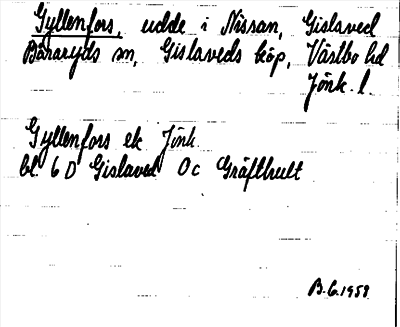 Gyllenfors, udde i Nissan, Gislaved
Båraryds sn, Gislaveds köp, Västbo hd
Jönk. l.
Gyllenfors ek Jönk.
bl. 6 D Gislaved 0c Gräfthult
B.G. 1958